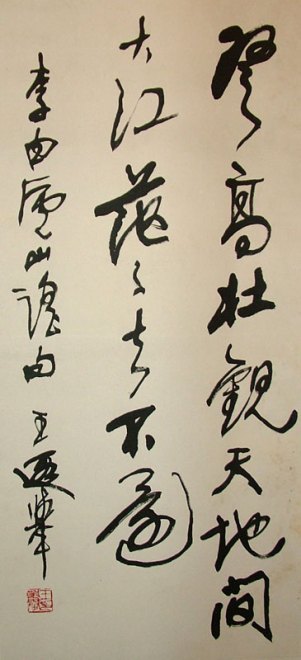 登高壯觀天地間
大江茫々去不還
李白廬山謠句 王遐舉